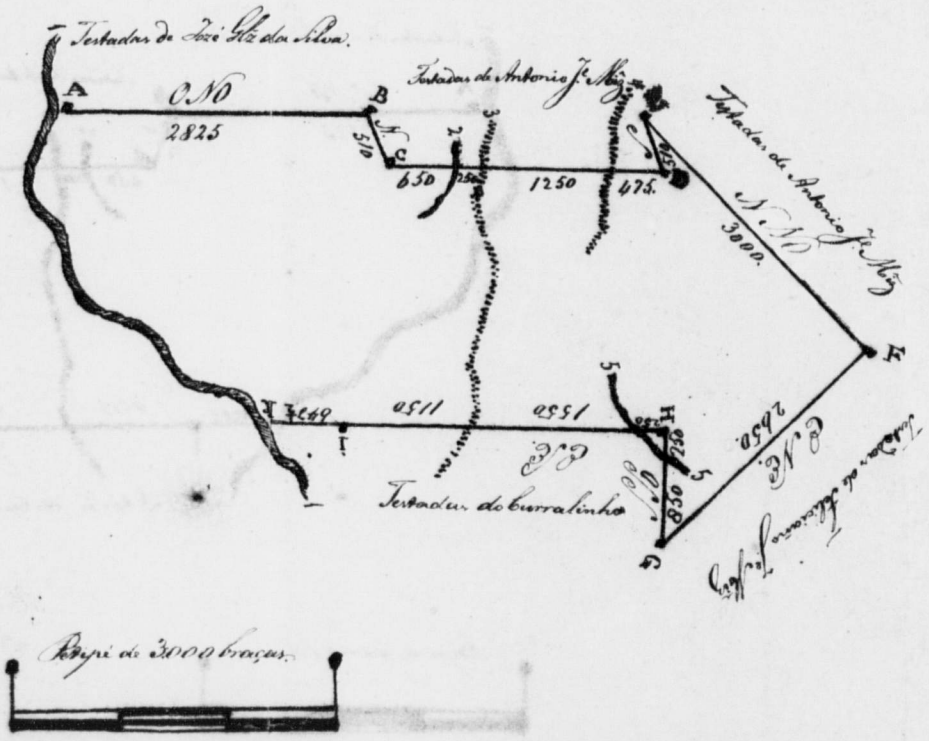 Testadas de Jozé Glz da Silva.
A
ONO
2825
B
N.
510
C
650
2
250
3
1250
475.
Testadas de Antonio Je. Miz
Testadas de Antonio Je. Miz
NNO
3000.
F
2650.
ENE.
Testadas de Feliciano Je. Miz
G
850
250
H
5
5
250
1550
1150
ESE
i
I
Testadas do Curralinho
Petipé de 3000 braças.